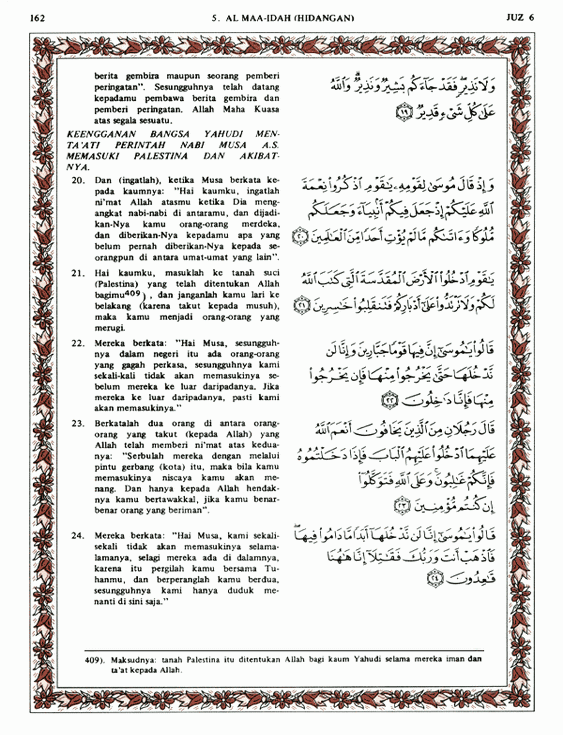 162
5. AL MAA-IDAH (HIDANGAN)
JUZ 6
berita gembira maupun seorang pemberi
peringatan". Sesungguhnya telah datang
kepadamu pembawa berita gembira dan
pemberi peringatan. Allah Maha Kuasa
atas segala sesuatu.
وَلَا نَذِيرٍ فَقَدْ جَاءَكُم بَشِيرٌ وَنَذِيرٌ وَاللَّهُ
عَلَىٰ كُلِّ شَىْءٍ قَدِيرٌ ﴿١٩﴾
KEENGGANAN BANGSA YAHUDI MEN-
TA'ATI PERINTAH NABI MUSA A.S.
MEMASUKI PALESTINA DAN AKIBAT-
NYA.
20. Dan (ingatlah), ketika Musa berkata ke-
pada kaumnya: "Hai kaumku, ingatlah
ni'mat Allah atasmu ketika Dia meng-
angkat nabi-nabi di antaramu, dan dijadi-
kan-Nya kamu orang-orang merdeka,
dan diberikan-Nya kepadamu apa yang
belum pernah diberikan-Nya kepada se-
orangpun di antara umat-umat yang lain".
وَإِذْ قَالَ مُوسَىٰ لِقَوْمِهِ يَٰقَوْمِ اذْكُرُوا نِعْمَةَ
اللَّهِ عَلَيْكُمْ إِذْ جَعَلَ فِيكُمْ أَنۢبِيَاءَ وَجَعَلَكُم
مُّلُوكًا وَءَاتَىٰكُم مَّا لَمْ يُؤْتِ أَحَدًا مِّنَ الْعَٰلَمِينَ ﴿٢٠﴾
21. Hai kaumku, masuklah ke tanah suci
(Palestina) yang telah ditentukan Allah
bagimu409) , dan janganlah kamu lari ke
belakang (karena takut kepada musuh),
maka kamu menjadi orang-orang yang
merugi.
يَٰقَوْمِ ادْخُلُوا الْأَرْضَ الْمُقَدَّسَةَ الَّتِى كَتَبَ اللَّهُ
لَكُمْ وَلَا تَرْتَدُّوا عَلَىٰ أَدْبَارِكُمْ فَتَنقَلِبُوا خَٰسِرِينَ ﴿٢١﴾
22. Mereka berkata: "Hai Musa, sesungguh-
nya dalam negeri itu ada orang-orang
yang gagah perkasa, sesungguhnya kami
sekali-kali tidak akan memasukinya se-
belum mereka ke luar daripadanya. Jika
mereka ke luar daripadanya, pasti kami
akan memasukinya."
قَالُوا يَٰمُوسَىٰ إِنَّ فِيهَا قَوْمًا جَبَّارِينَ وَإِنَّا لَن
نَّدْخُلَهَا حَتَّىٰ يَخْرُجُوا مِنْهَا فَإِن يَخْرُجُوا
مِنْهَا فَإِنَّا دَٰخِلُونَ ﴿٢٢﴾
23. Berkatalah dua orang di antara orang-
orang yang takut (kepada Allah) yang
Allah telah memberi ni'mat atas kedua-
nya: "Serbulah mereka dengan melalui
pintu gerbang (kota) itu, maka bila kamu
memasukinya niscaya kamu akan me-
nang. Dan hanya kepada Allah hendak-
nya kamu bertawakkal, jika kamu benar-
benar orang yang beriman".
قَالَ رَجُلَانِ مِنَ الَّذِينَ يَخَافُونَ أَنْعَمَ اللَّهُ
عَلَيْهِمَا ادْخُلُوا عَلَيْهِمُ الْبَابَ فَإِذَا دَخَلْتُمُوهُ
فَإِنَّكُمْ غَٰلِبُونَ وَعَلَى اللَّهِ فَتَوَكَّلُوا
إِن كُنتُم مُّؤْمِنِينَ ﴿٢٣﴾
24. Mereka berkata: "Hai Musa, kami sekali-
sekali tidak akan memasukinya selama-
lamanya, selagi mereka ada di dalamnya,
karena itu pergilah kamu bersama Tu-
hanmu, dan berperanglah kamu berdua,
sesungguhnya kami hanya duduk me-
nanti di sini saja."
قَالُوا يَٰمُوسَىٰ إِنَّا لَن نَّدْخُلَهَا أَبَدًا مَّا دَامُوا فِيهَا
فَاذْهَبْ أَنتَ وَرَبُّكَ فَقَٰتِلَا إِنَّا هَٰهُنَا
قَٰعِدُونَ ﴿٢٤﴾
409). Maksudnya: tanah Palestina itu ditentukan Allah bagi kaum Yahudi selama mereka iman dan
ta'at kepada Allah.